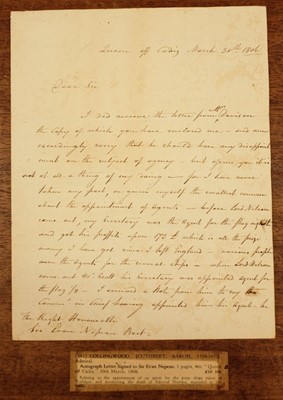 Queen off Cadiz March 30th 1806
Dear Sir
I did receive the letter from Mr Davison
the Copy of which you have enclosed me – and am
exceedingly sorry that he should have any disappoint
ment on the subject of agency – but upon you it is
not at all a thing of my doing – for I have never
taken any part, or given myself the smallest concern
about the appointment of Agents – before Lord Nelson
came out, my Secretary was the Agent for the flag
and got his profits upon 175£ which is all the prize
money I have got since I left England – various people
were the Agents for the several Ships – when Lord Nelson
came out Mr Scott his Secretary was appointed agent for
the flag – I received a Note from him to say the
Comm in Chief having appointed him his Agent – he
the Right Honourable
Sir Evan Nepean Bart.
COLLINGWOOD (CUTHBERT, BARON,
Admiral.
Autograph Letter Signed to Sir Evan Nepean, 3 pages, 4to, "Queen
off Cadiz," 30th March, 1806.